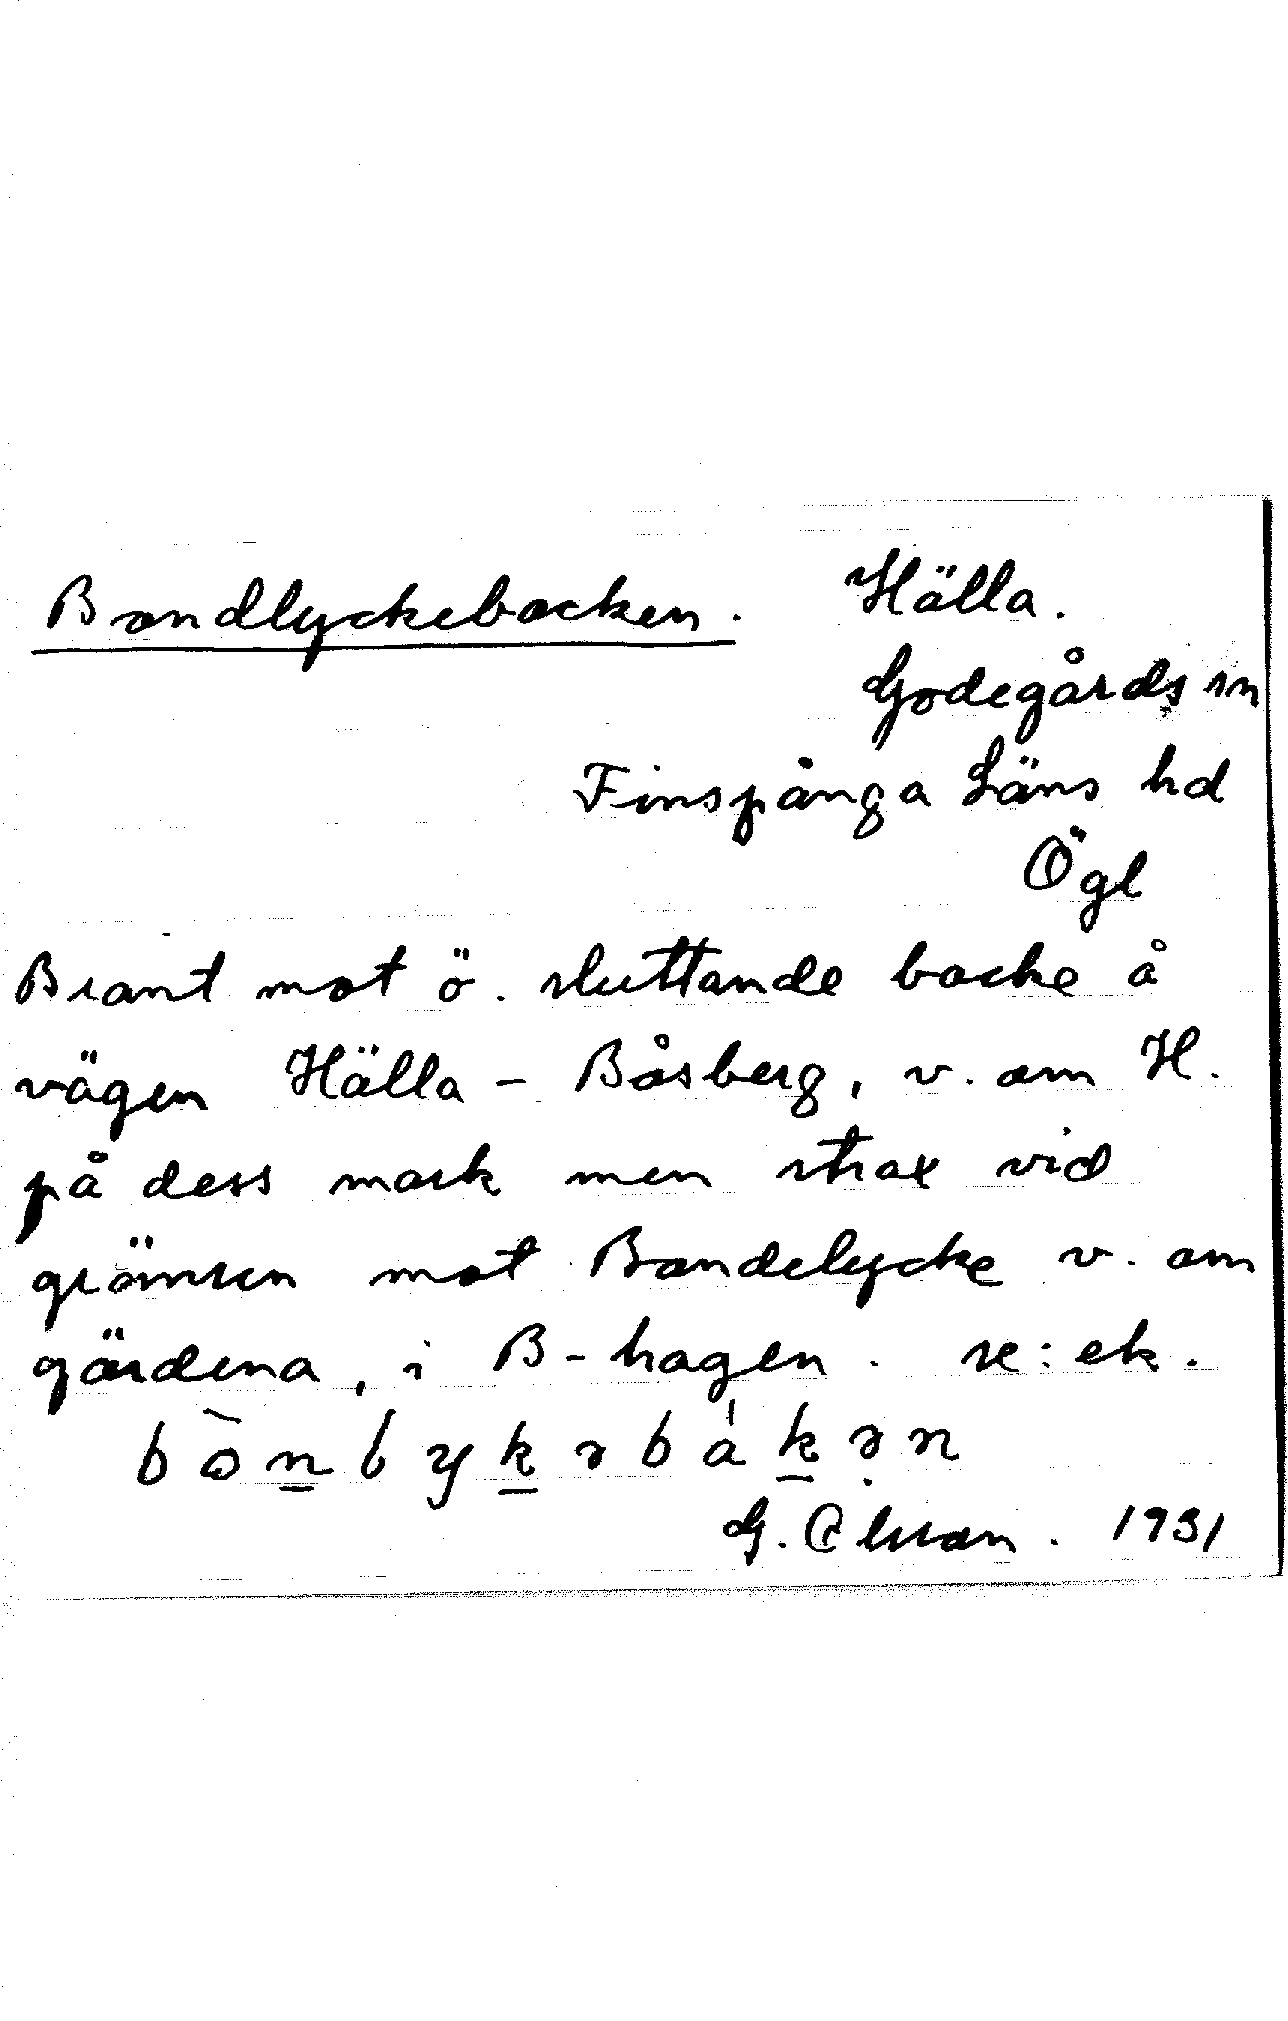 Bandlyckebacken. Hälla.
Godegårds sn
Finspånga Läns hd
Ögl
Brant mot ö. sluttande backe å
vägen Hälla - Båsberg, v. om H.
på dess mark men strax vid
gränsen mot Bandelycke v. om
gärdena, i B-hagen. se: ek.
G. Olsson. 1931